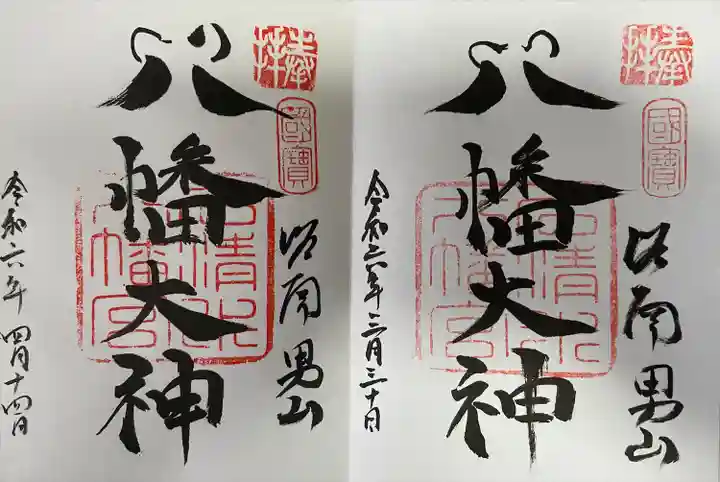 奉拝
國寶
八幡大神
石清水八幡宮
都南男山
令和六年三月三十日
奉拝
國寶
八幡大神
石清水八幡宮
都南男山
令和六年四月十四日